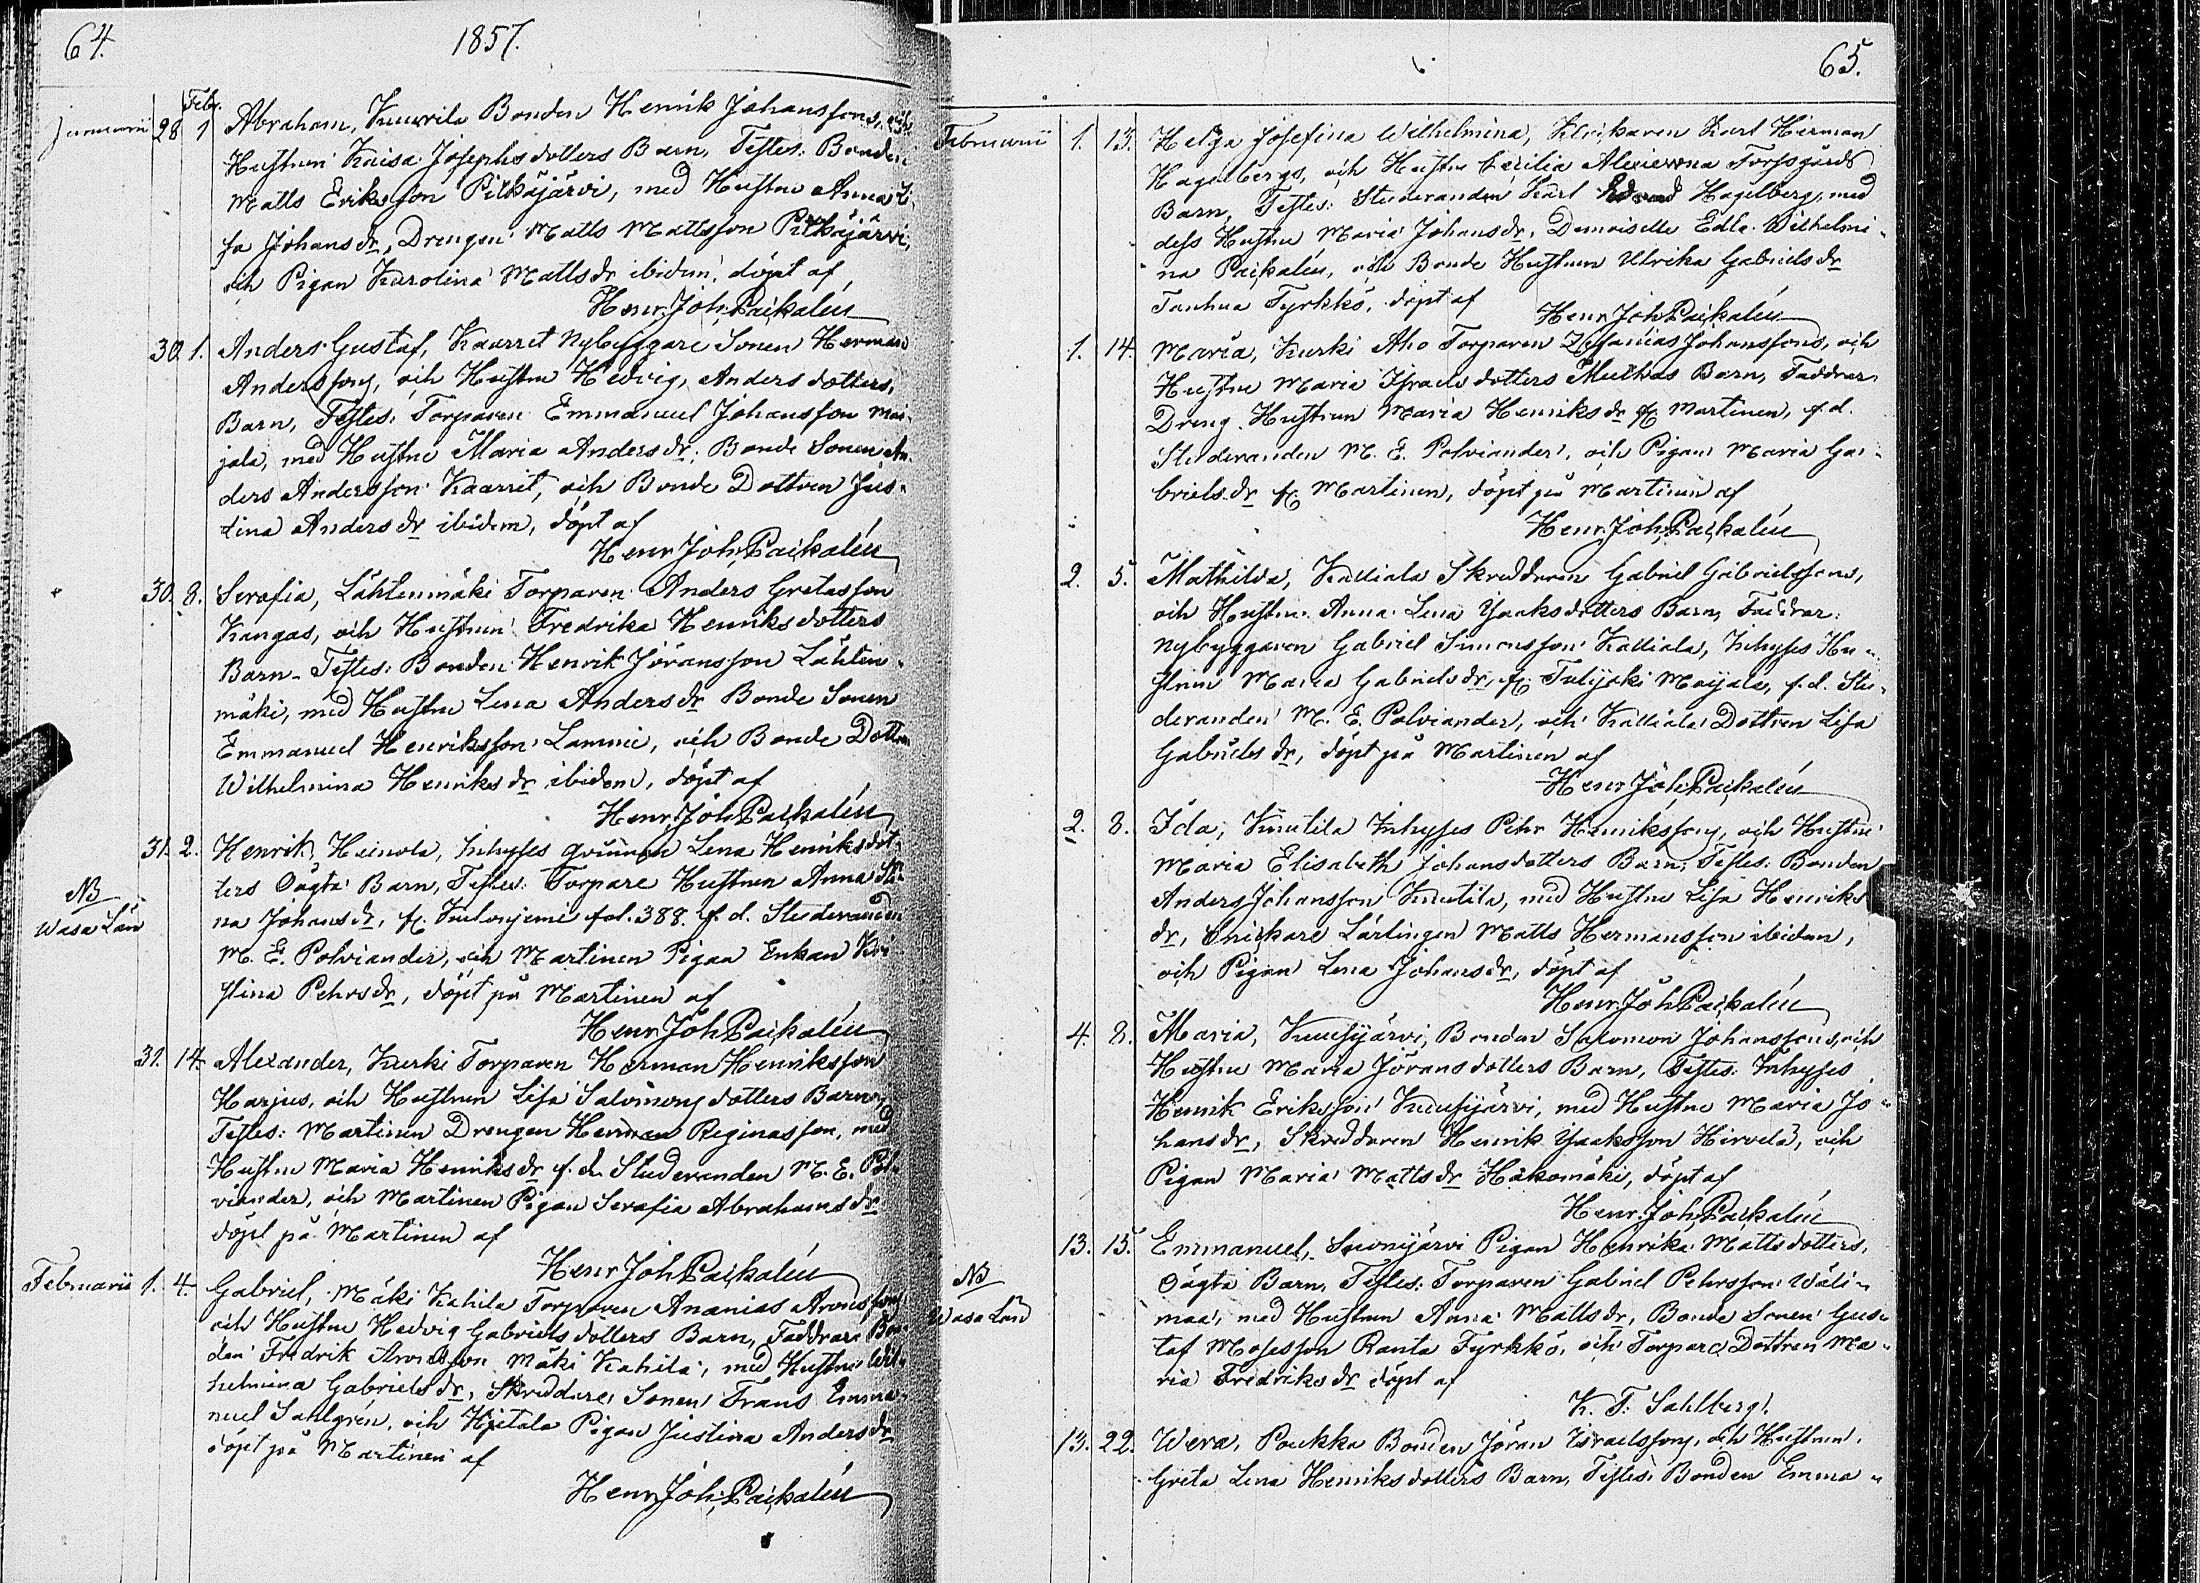 64.
1857.
Febr.
Januarii 28 1 Abraham, Kuurila Bonden Henrik Johanssons, och
Hustrun Kaisa Josephsdotters Barn, Testes: Bonden
Matts Eriksson Pitkäjärvi, med Hustru Anna Li-
sa Johansdr, Drengen Matts Mattsson Pitkäjärvi,
och Pigan Karolina Mattsdr ibidem, döpt af
Henr. Joh. Paikalén
30. 1. Anders Gustaf, Kaarret Nybyggare Sonen Herman
Anderssons, och Hustru Hedvig Andersdotters,
Barn, Testes: Torparen Emmanuel Johansson Mai-
jala, med Hustru Maria Andersdr, Bonde Sonen An-
ders Andersson Kaarret, och Bonde Dottren Jus-
tina Andersdr ibidem, döpt af
Henr. Joh. Paikalén
30. 8. Serafia, Lähtenmäki Torparen Anders Gretasson
Kangas, och Hustrun Fredrika Henriksdotters
Barn. Testes: Bonden Henrik Jöransson Lähten-
mäki, med Hustru Lena Andersdr Bonde Sonen
Emmanuel Henriksson Lammi, och Bonde Dottren
Wilhelmina Henriksdr ibidem, döpt af
Henr. Joh. Paikalén
31. 2. Henrik, Heinola, Inhyses qvinnan Lena Henriksdot-
ters Oägta Barn, Testes: Torpare Hustrun Anna Sti-
NB
Wasa Län
na Johansdr, fol. 388. f.d. Studeranden
M. E. Polviander, och Martinen Pigan Enkan Kri-
stina Pehrsdr, döpt på Martinen af
Henr. Joh. Paikalén
31. 14. Alexander, Kurki Torparen Herman Henriksson
Harjus, och Hustrun Lisa Salomonsdotters Barn,
Testes: Martinen Drengen Herman Reginasson, med
Hustru Maria Henriksdr f.d. Studeranden M. E. Pol-
viander, och Martinen Pigan Serafia Abrahamsdr
döpt på Martinen af
Henr. Joh. Paikalén
Februarii 1. 4. Gabriel, Mäki Kahila Torparen Ananias Aronsson
och Hustru Hedvig Gabrielsdotters Barn, Faddrar: Bon-
den Fredrik Aronsson Mäki Kahila, med Hustru Wil-
helmina Gabrielsdr, Skreddare Sonen Frans Emma-
nuel Sahlgrén, och Hjetala Pigan Justina Andersdr
döpt på Martinen af
Henr. Joh. Paikalén
65.
Februarii 1. 13. Helga Josefina Wilhelmina, Klockaren Karl Herman
Hagelbergs, och Hustru Cecilia Alexiewna Forssgårds
Barn, Testes: Studeranden Karl Edvard Hagelberg, med
dess Hustru Maria Johansdr, Demoiselle Edla Wilhelmi-
na Paikalén, och Bonde Hustrun Ulrika Gabrielsdr
Tanhua Tyrkkö, döpt af
Henr. Joh. Paikalén
1. 14. Maria, Kurki Aho Torparen Zefanias Johanssons, och
Hustru Maria Israelsdotters Barn, Faddrar:
Dreng Hustrun Maria Henriksdr fr. Martinen, f.d.
Studeranden M. E. Polviander, och Pigan Maria Ga-
brielsdr fr. Martinen, döpt på Martinen af
Henr. Joh. Paikalén
2. 5. Mathilda, Kalliala Skreddaren Gabriel Gabrielssons,
och Hustru Anna Lena Isaksdotters Barn, Faddrar:
Nybyggaren Gabriel Simonsson Kalliala, Inhyses Hu-
strun Maria Gabrielsdr, fr. Tulijoki Maijala, f.d. Stu-
deranden M. E. Polviander, och Kalliala Dottren Lisa
Gabrielsdr, döpt på Martinen af
Henr. Joh. Paikalén
2. 8. Ida, Knutila Inhyses Pehr Henrikssons, och Hustru
Maria Elisabeth Johansdotters Barn, Testes: Bonden
Anders Johansson Knutila, med Hustru Lisa Henriks-
dr, Snickare Lärlingen Matts Hermansson ibidem,
och Pigan Lena Johansdr, döpt af
Henr. Joh. Paikalén
4. 8. Maria, Kuusijärvi, Bonden Salomon Johanssons, och
Hustru Maria Jöransdotters Barn, Testes: Inhyses
Henrik Eriksson Kuusijärvi, med Hustru Maria Jo-
hansdr, Skreddaren Henrik Isaksson Hirvelä, och
Pigan Maria Mattsdr Hakomäki, döpt af
Henr. Joh. Paikalén
13. 15. Emmanuel, Suonijärvi Pigan Henrika Mattsdotters,
NB
Wasa Län
Oägta Barn, Testes: Torparen Gabriel Pehrsson Wäli-
maa, med Hustrun Anna Mattsdr, Bonde Sonen Gus-
taf Mosesson Ranta Tyrkkö, och Torpare Dottren Ma-
ria Fredriksdr döpt af
K. F. Sahlberg.
13. 22. Wera, Poukka Bonden Jöran Israelssons, och Hustrun
Greta Lena Henriksdotters Barn, Testes: Bonden Emma-